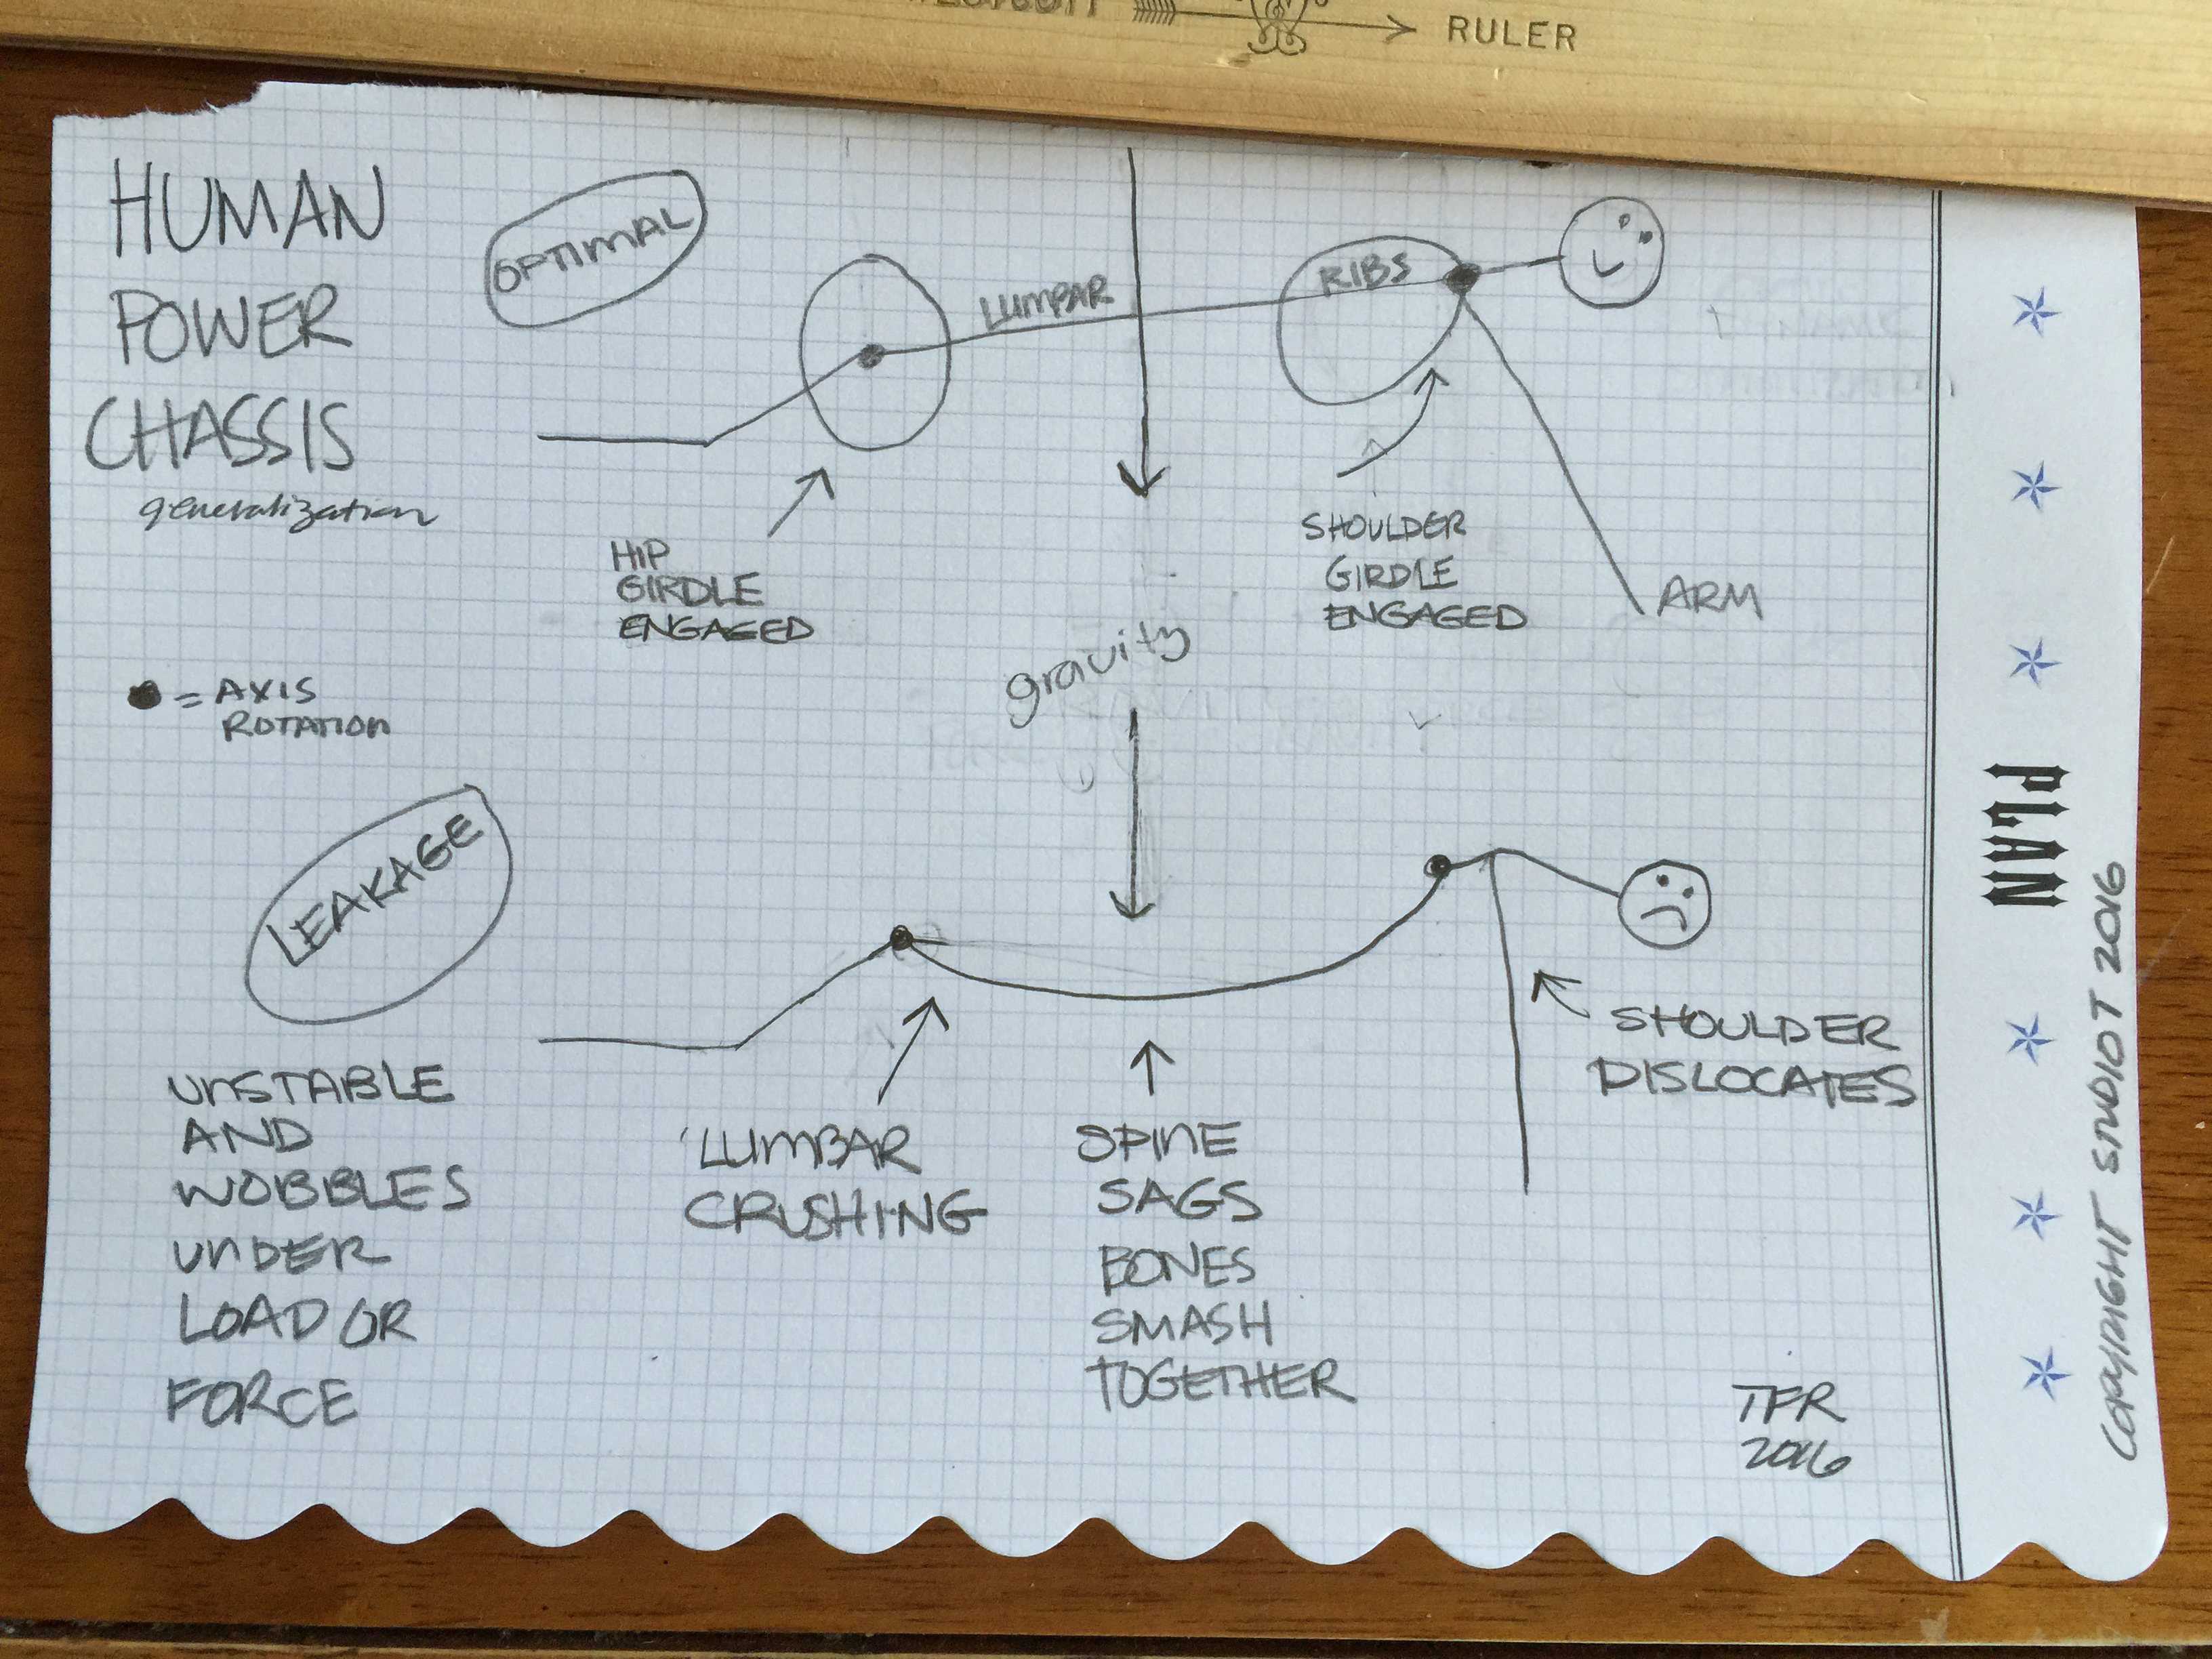 RULER
HUMAN
POWER
CHASSIS
generalization
OPTIMAL
LUMBAR
RIBS
HIP
GIRDLE
ENGAGED
SHOULDER
GIRDLE
ENGAGED
ARM
gravity
= AXIS
ROTATION
LEAKAGE
UNSTABLE
AND
WOBBLES
UNDER
LOAD OR
FORCE
LUMBAR
CRUSHING
SPINE
SAGS
BONES
SMASH
TOGETHER
SHOULDER
DISLOCATES
TFR
2016
PLAN
COPYRIGHT STUDIOT 2016